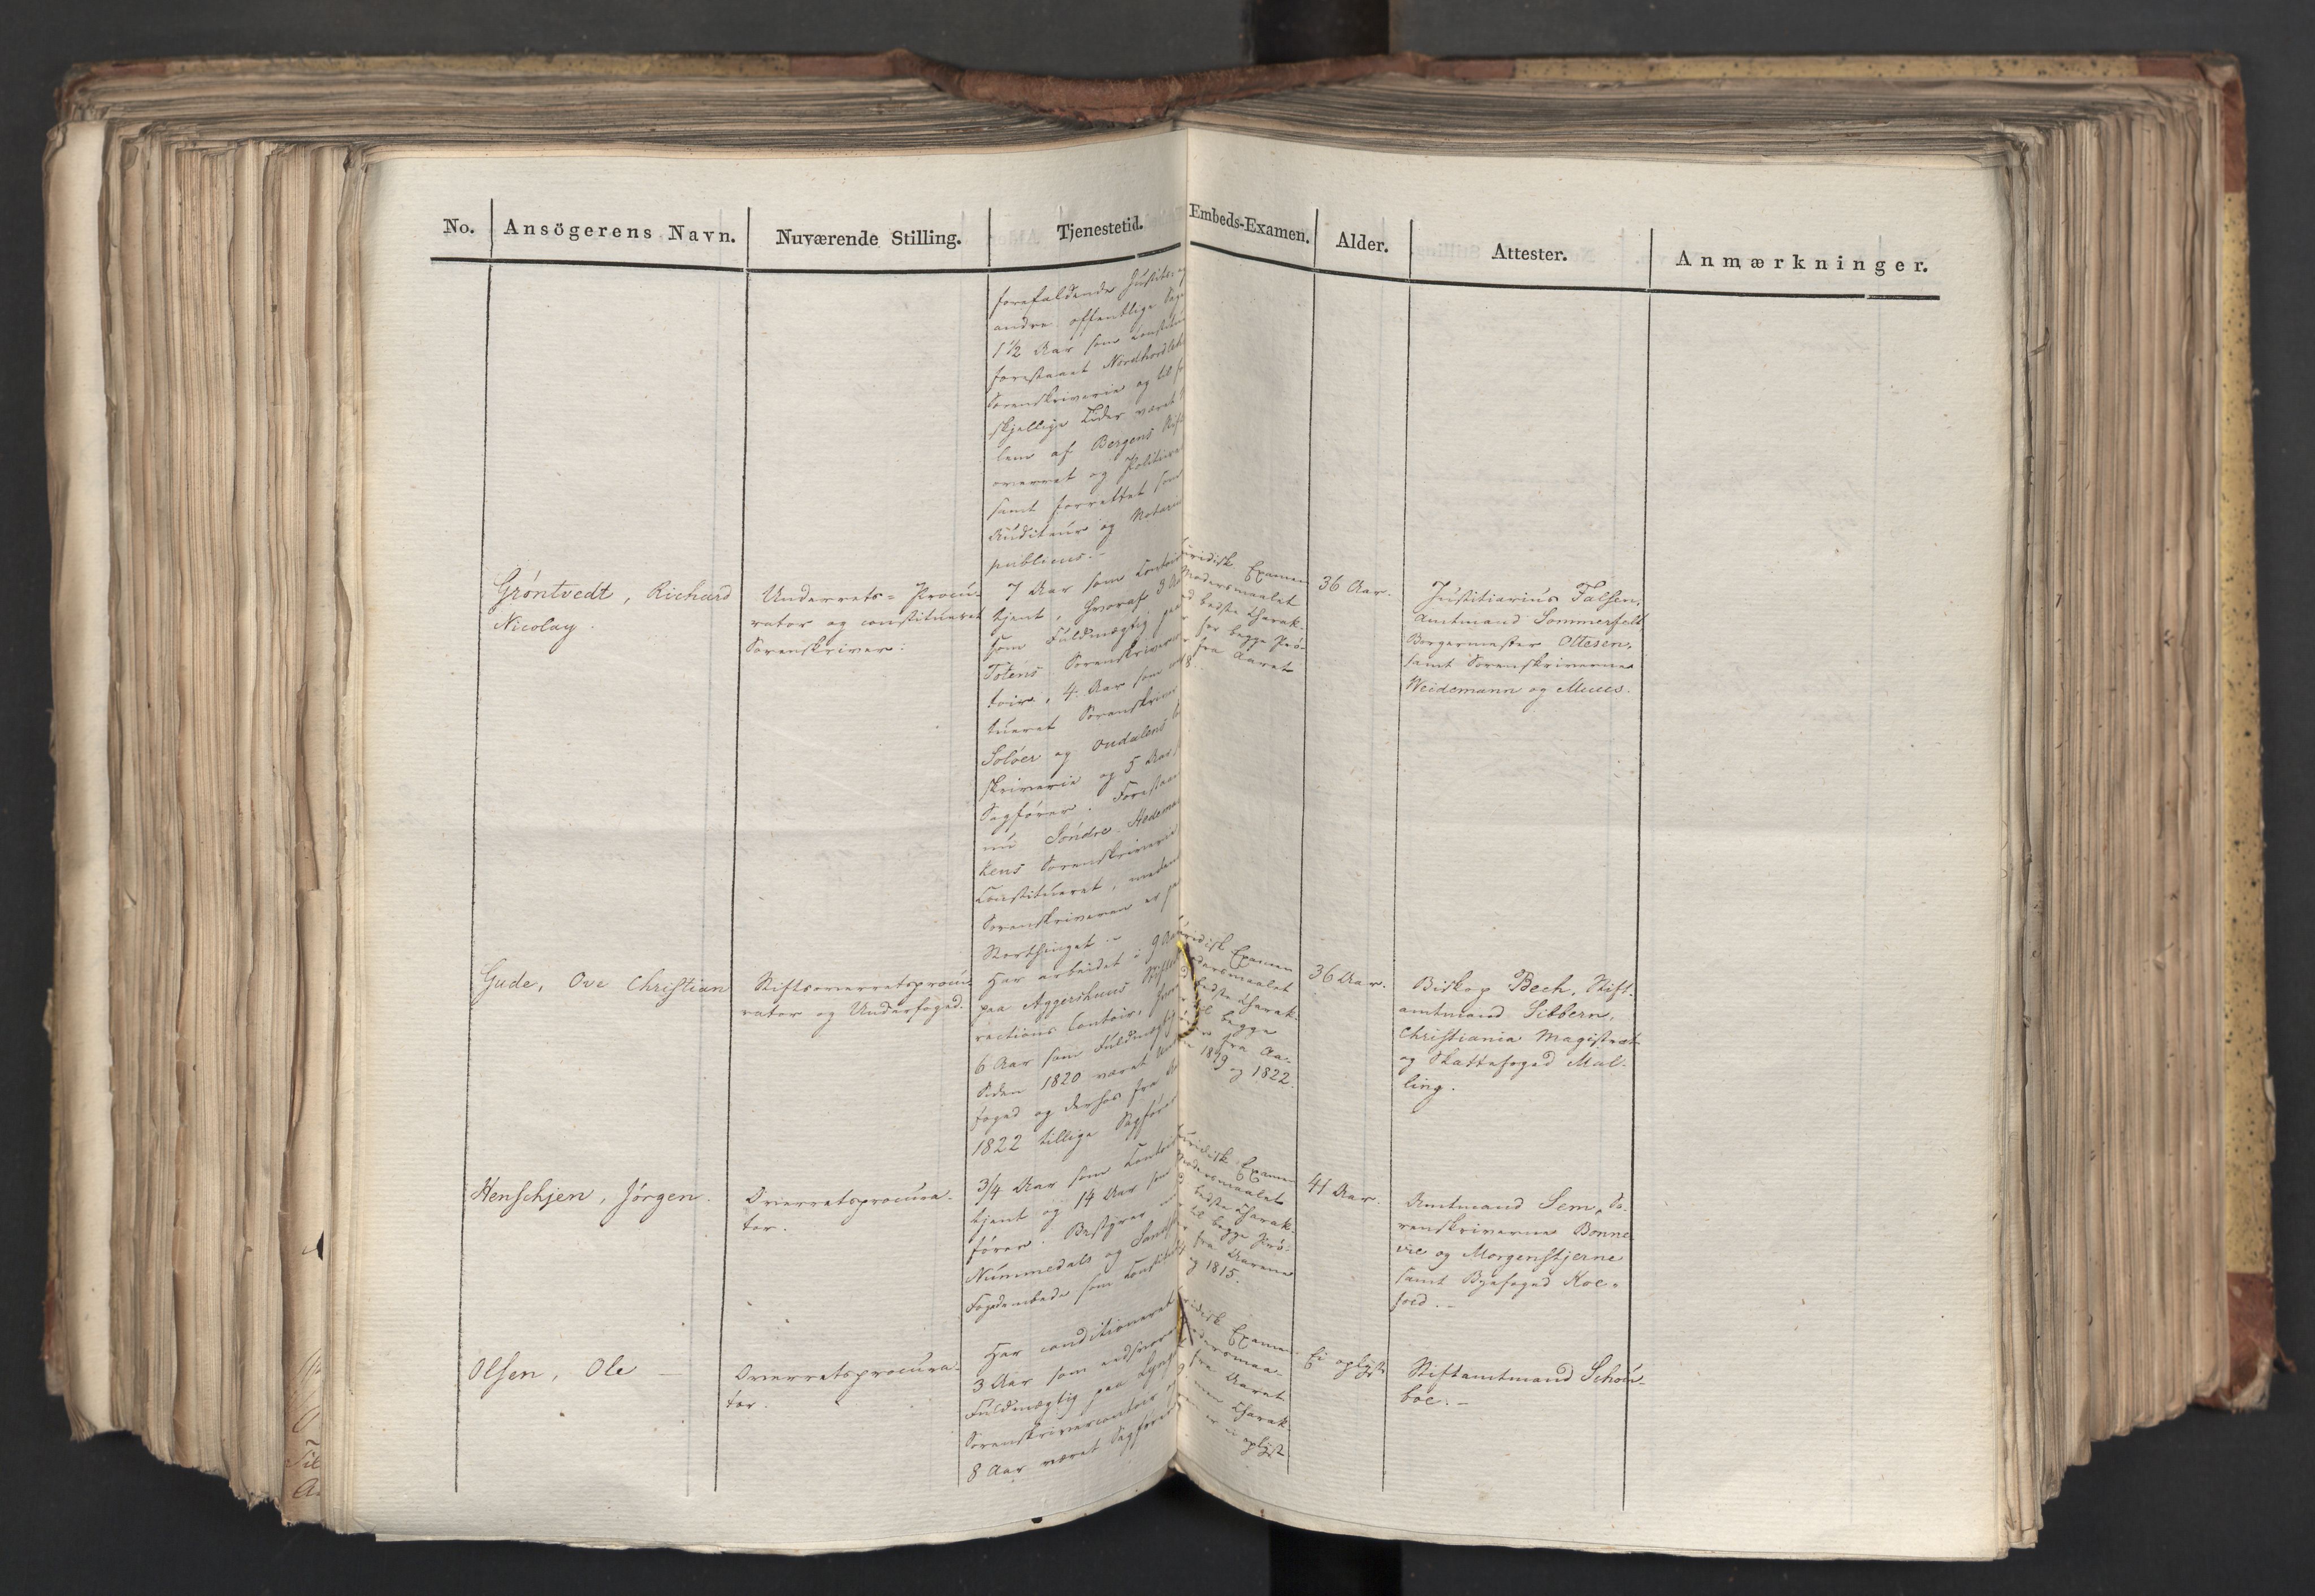 No. Ansögerens Navn. Nuværende Stilling. Tjenestetid. Embeds-Examen. Alder. Attester. Anmærkninger.
forefaldende Justits- og
andre offentlige Sager
1½ Aar som Constitueret
forestaaet Nordhordlehns
Sorenskriverie og til for-
skjellige Tider været
lem af Bergens Stifts
overret og Politieret
samt forrettet som
Auditeur og Notarius
publicus.-
Gröntvedt, Richard
Nicolay.
Underrets-Procu-
rator og constitueret
Sorenskriver:
7 Aar som Contoir
tjent, hvoraf 3 Aar
som Fuldmægtig paa
Totens Sorenskriver
toir, 4 Aar som
tueret Sorenskriver
Solöer og Oudalens So
skriverie og 5 Aar
Sagförer. Forestaaer
nu Söndre Hedemar
kens Sorenskriverie
Constitueret, medens
Sorenskriveren er paa
Storthinget.-
uridisk Examen
Modersmaalet
d bedste Charak-
r for begge Prö-
r fra Aaret
36 Aar.
Justitiarius Falsen,
Amtmand Sommerfelt,
Borgermester Ottesen,
samt Sorenskriverne
Weidemann og Muus.
Gude, Ove Christian
Stiftsoverretsprocu-
rator og Underfoged.
Har arbeidet i 9 Aar
paa Aggershuus Stiftsdi
rections Contoir, hvoraf
6 Aar som Fuldmægtig
Siden 1820 været Under
foged og derhos fra
1822 tillige Sagförer
uridisk Examen
odersmaalet
d bedste Charak-
r til begge
r fra Aa-
1819
og 1822.
36 Aar.
Biskop Bech, Stift-
amtmand Sibbern,
Christiania Magistrat
og Skattefoged Mal-
ling.
Henschjen, Jörgen.
Overretsprocura-
tor.
3/4 Aar som Contoir
tjent og 14 Aar som
förer. Bestyrer nu
Nummedals og Sandsv
Fogedembede som Constitueret
uridisk Examen
Modersmaalet
d bedste Charak-
r til begge Prö-
r fra Aarene
og 1815.
41 Aar.
Amtmand Sem, So-
renskriverne Bonne
vie og Morgenstjerne
samt Byefoged Koe-
foed.-
Olsen, Ole —
Overretsprocura-
tor.
Har conditioneret
3 Aar som edsvoren
Fuldmægtig paa Lyngd
Sorenskrivercontoir og
8 Aar været Sagförer
ridisk Examen
odersmaa-
fra Aaret
men Charak-
en er ei oplyst
Ei oplyst
Stiftamtmand Schou-
boe.-